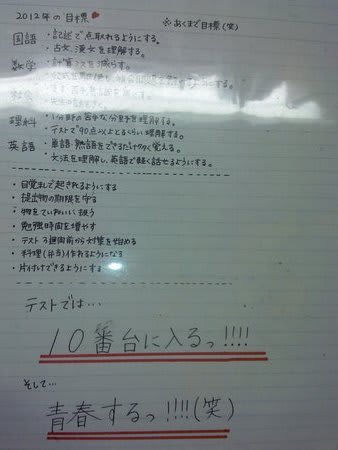 2012年の目標 ※あくまで目標(笑)
国語 ・記述で点取れるようにする。
・古文、漢文を理解する。
数学 ・計算ミスを減らす。
社会
理科 ・1分野の苦手な分野を理解する。
・テストで90点以上とるくらい理解する。
英語 ・単語・熟語をできるだけ多く覚える。
・文法を理解し、英語で軽く話せるようにする。
・目覚ましで起きれるようにする
・提出物の期限を守る
・物をていねいに扱う
・勉強時間を増やす
・テスト3週間前から対策を始める
・料理(弁当)作れるようになる
・片付けできるようにする
テストでは…
10番台に入るっ!!!!
そして…
青春するっ!!!!(笑)